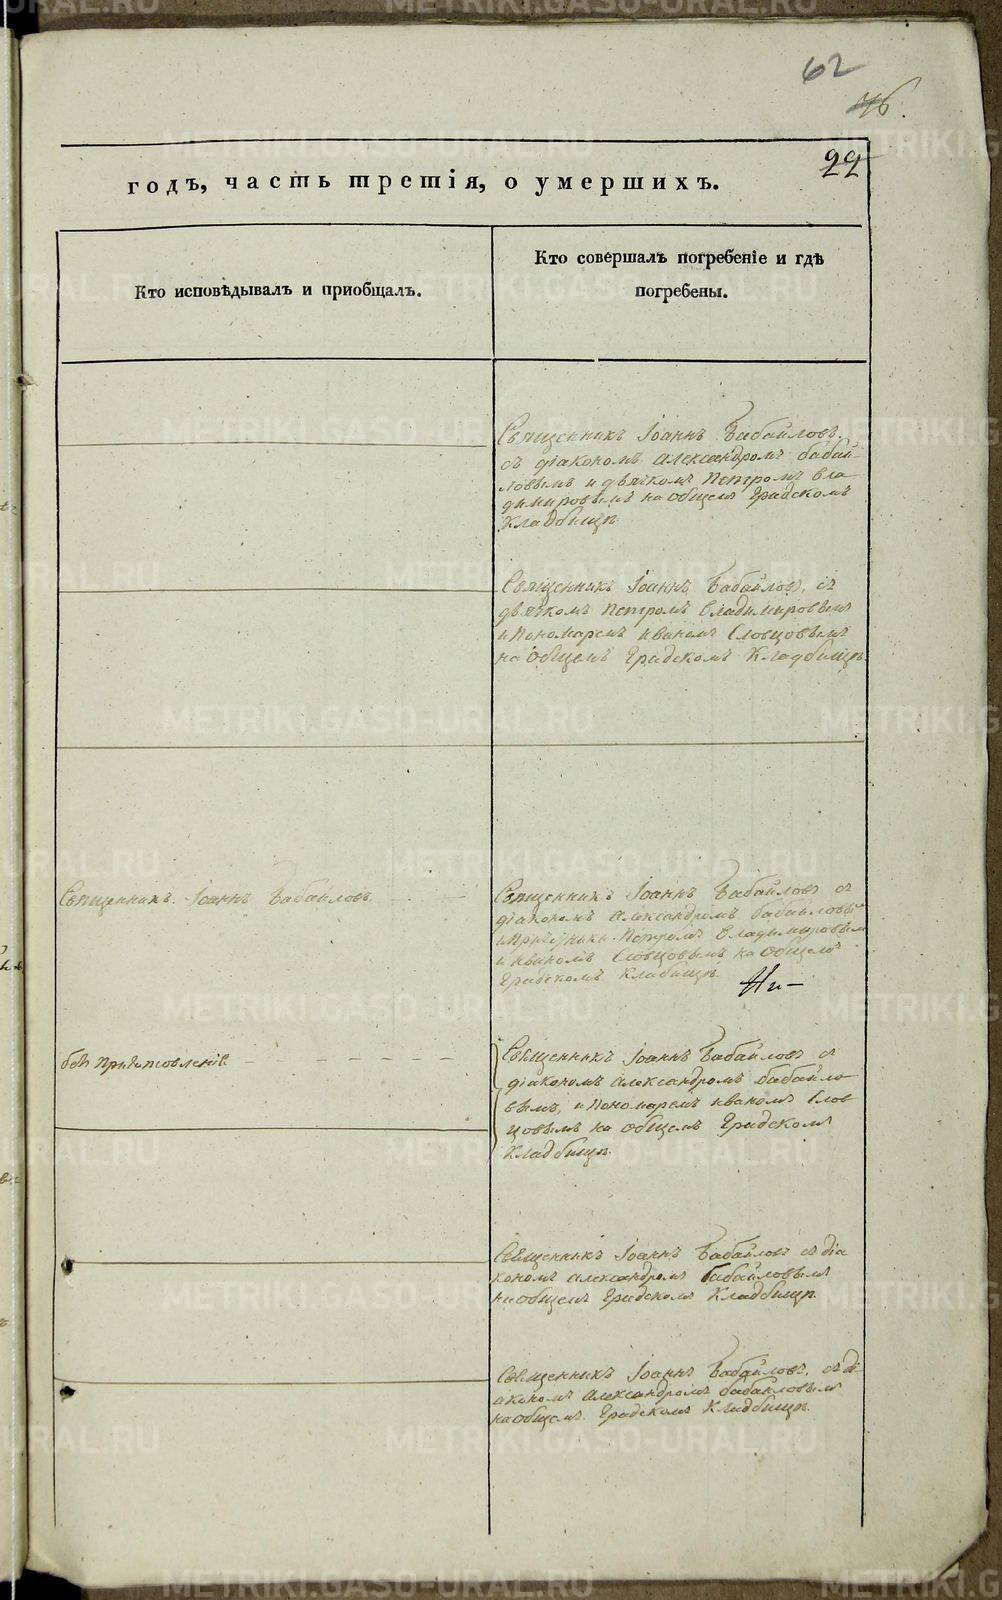 62
46.
22
годъ, часть третія, о умершихъ.
Кто исповѣдывалъ и приобщалъ.
Кто совершалъ погребеніе и гдѣ
погребены.
Священникъ Іоаннъ Бабайловъ,
съ діакономъ Александромъ Бабай-
ловымъ и дьячкомъ Петромъ Вла
димировымъ на общемъ Градскомъ
Кладбищѣ.
Священникъ Іоаннъ Бабайловъ, съ
дьячкомъ Петромъ Владимировымъ
и Пономаремъ Иваномъ Словцовымъ
на общемъ Градскомъ Кладбищѣ.
Священникъ Іоаннъ Бабайловъ
Священникъ Іоаннъ Бабайловъ съ
діакономъ Александромъ Бабайловы
Петромъ Владимировымъ
и Иваномъ Словцовымъ на общемъ
Градскомъ Кладбищѣ.
безъ Приготовленія
Священникъ Іоаннъ Бабайловъ съ
діакономъ Александромъ Бабайло
вымъ, и Пономаремъ Иваномъ Слов
цовымъ на общемъ Градскомъ
Кладбищѣ.
Священникъ Іоаннъ Бабайловъ съ діа
кономъ Александромъ Бабайловымъ
на общемъ Градскомъ Кладбищѣ.
Священникъ Іоаннъ Бабайловъ, съ ді
акономъ Александромъ Бабайловымъ
на общемъ Градскомъ Кладбищѣ.
METRIKI.GASO-URAL.RU